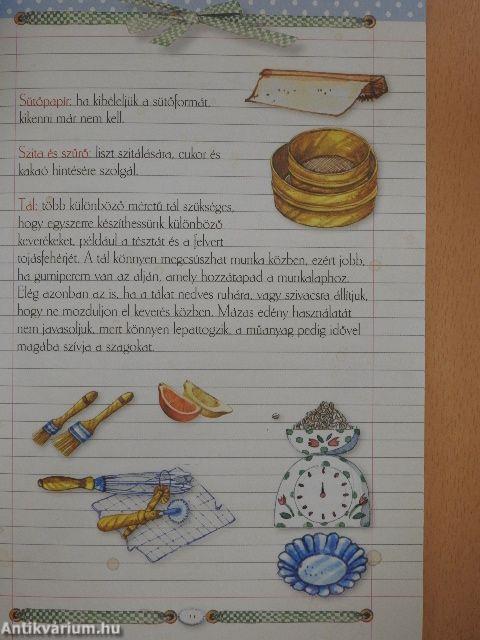 Sütőpapír: ha kibéleljük a sütőformát,
kikenni már nem kell.
Szita és szűrő: liszt szitálására, cukor és
kakaó hintésére szolgál.
Tál: több különböző méretű tál szükséges,
hogy egyszerre készíthessünk különböző
keverékeket, például a tésztát és a felvert
tojásfehérjét. A tál könnyen megcsúszhat munka közben, ezért jobb,
ha gumiperem van az alján, amely hozzátapad a munkalaphoz.
Elég azonban az is, ha a tálat nedves ruhára, vagy szivacsra állítjuk,
hogy ne mozduljon el keverés közben. Mázas edény használatát
nem javasoljuk, mert könnyen lepattogzik, a műanyag pedig idővel
magába szívja a szagokat.
Antikvárium.hu